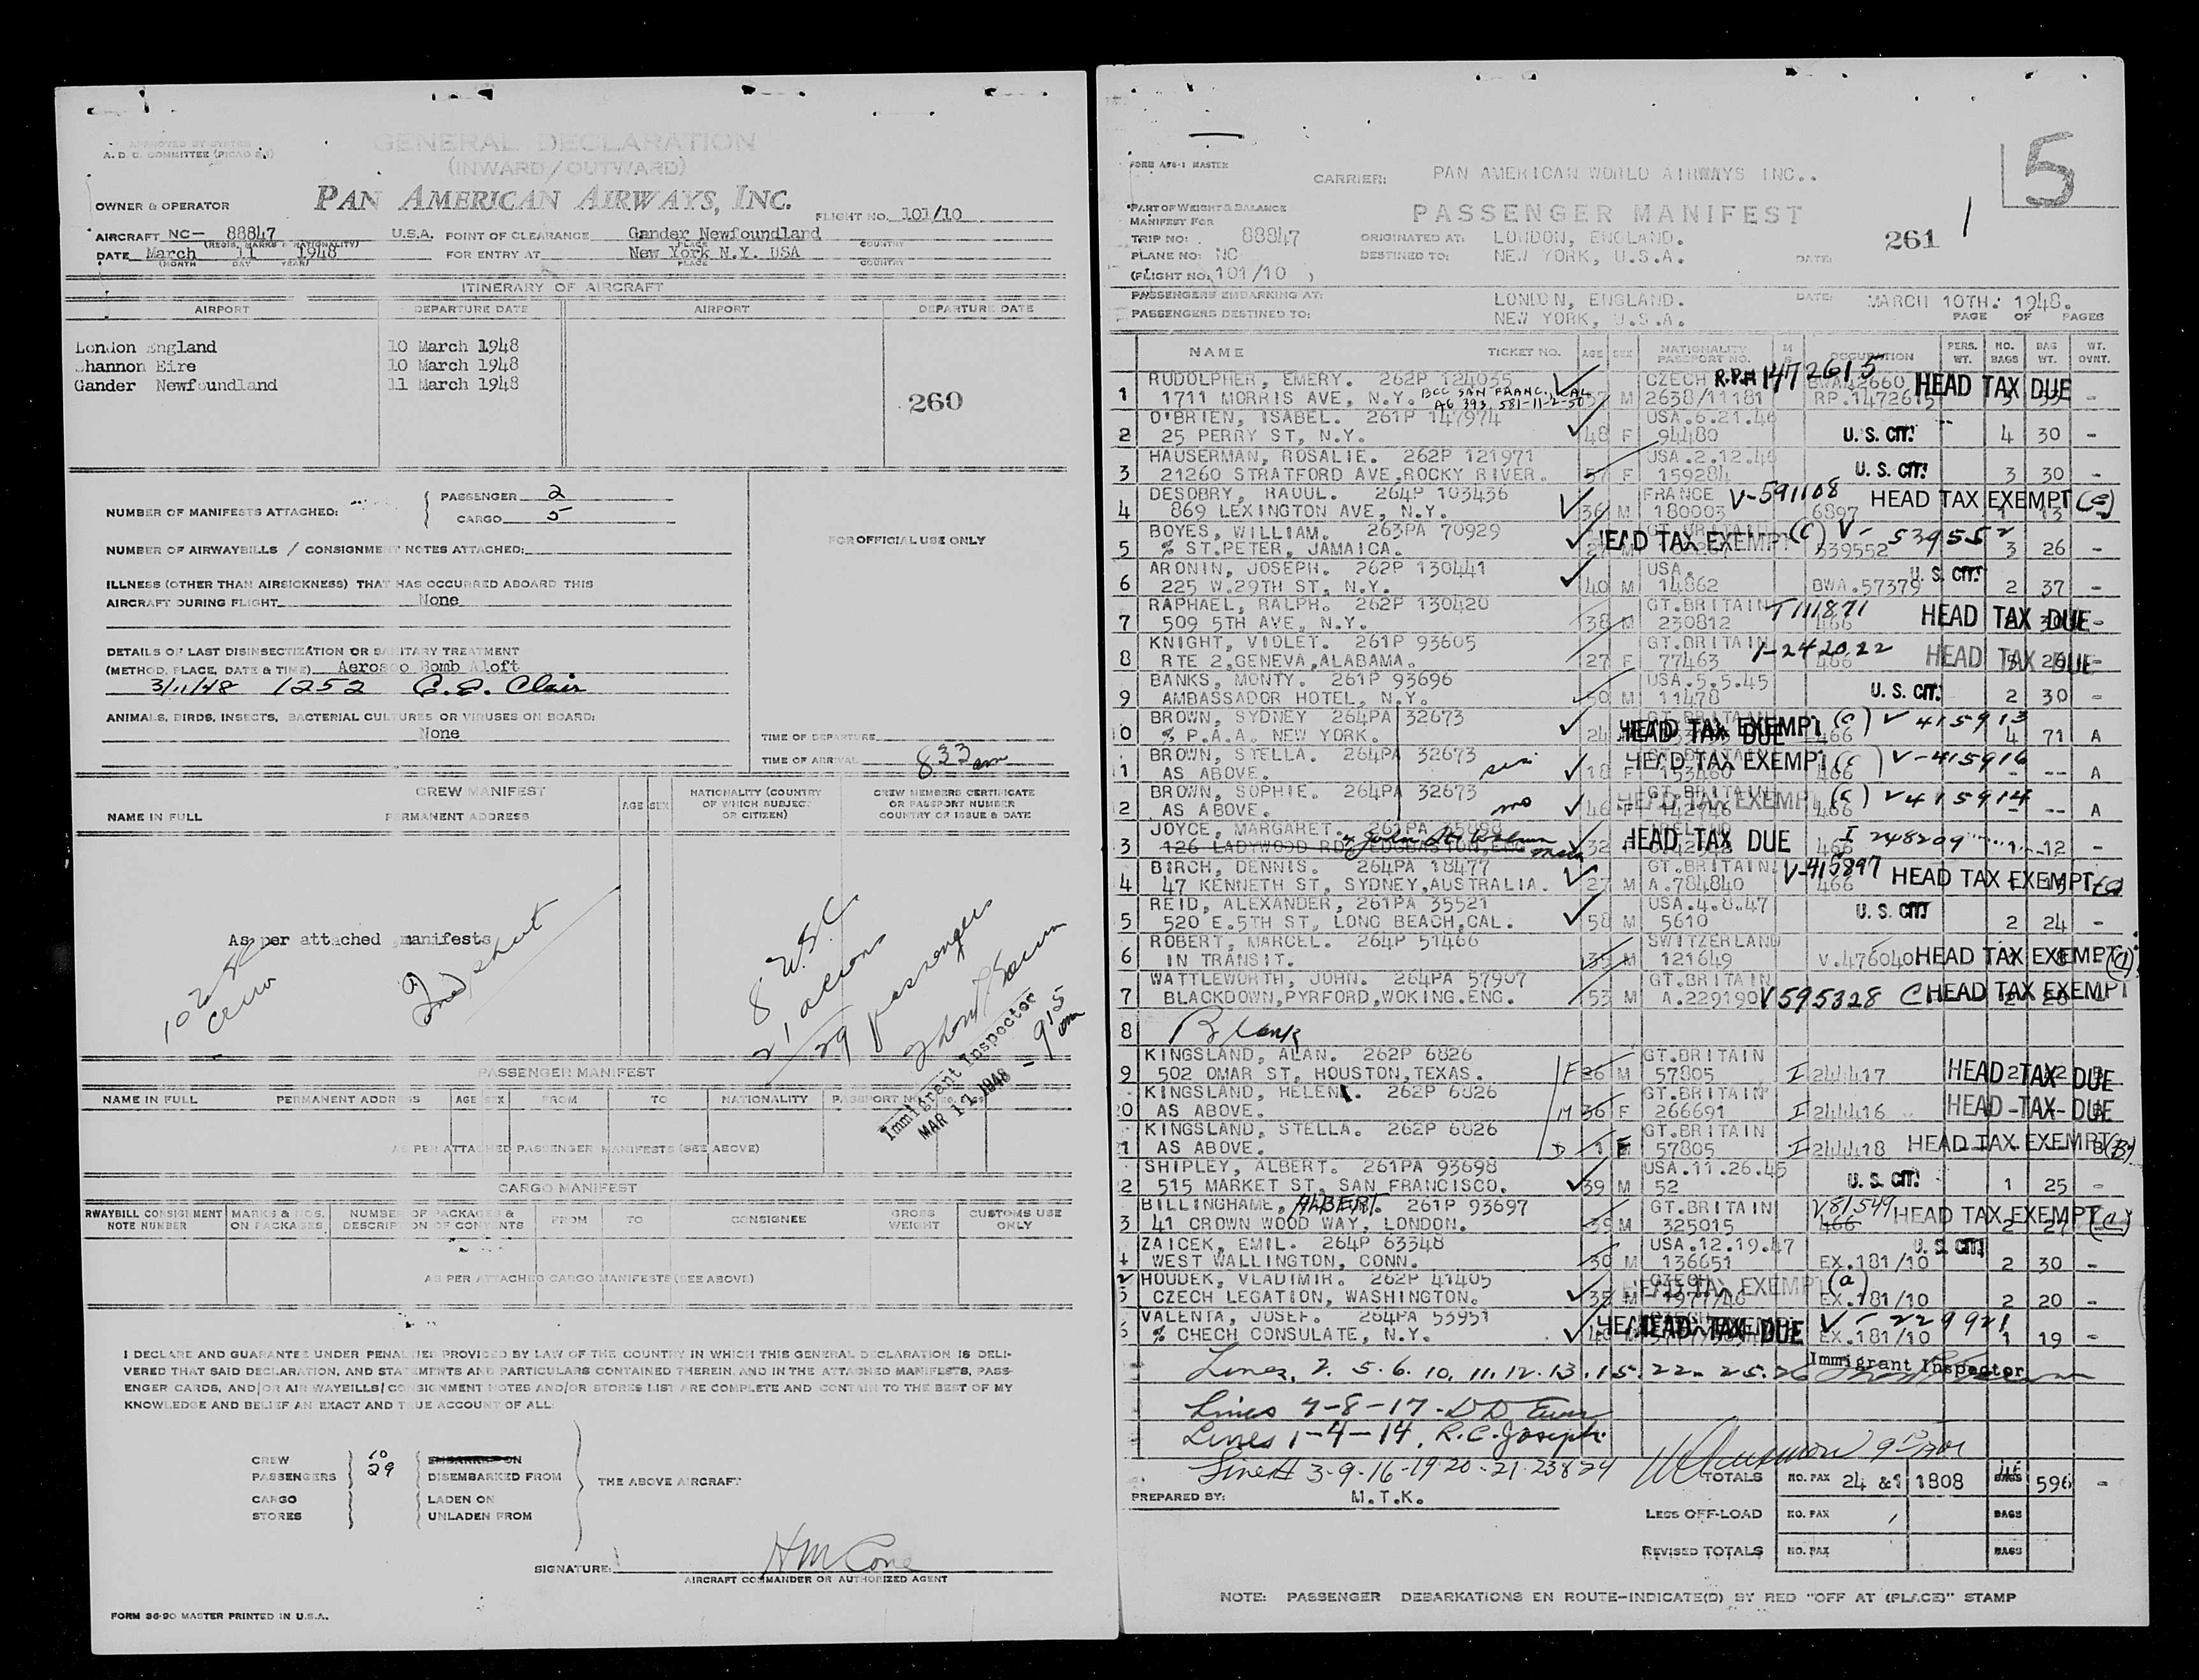 A. D. C. COMMITTEE
GENERAL DECLARATION
(INWARD/OUTWARD)
PAN AMERICAN AIRWAYS, INC.
OWNER & OPERATOR
FLIGHT NO. 101/10
AIRCRAFT NC- 88847 U.S.A. POINT OF CLEARANCE Gander Newfoundland
(REGIS. MARKS & NATIONALITY) PLACE COUNTRY
DATE March 11 1948 FOR ENTRY AT New York N.Y. USA
(MONTH DAY YEAR) PLACE COUNTRY
ITINERARY OF AIRCRAFT
AIRPORT DEPARTURE DATE AIRPORT DEPARTURE DATE
London England 10 March 1948
Shannon Eire 10 March 1948
Gander Newfoundland 11 March 1948
260
NUMBER OF MANIFESTS ATTACHED:
PASSENGER 2
CARGO 5
FOR OFFICIAL USE ONLY
NUMBER OF AIRWAYBILLS / CONSIGNMENT NOTES ATTACHED:
ILLNESS (OTHER THAN AIRSICKNESS) THAT HAS OCCURRED ABOARD THIS
AIRCRAFT DURING FLIGHT None
DETAILS OF LAST DISINSECTIZATION OR SANITARY TREATMENT
(METHOD, PLACE, DATE & TIME) Aerosoo Bomb Aloft
3/11/48 1252 Clair
ANIMALS, BIRDS, INSECTS, BACTERIAL CULTURES OR VIRUSES ON BOARD:
None
TIME OF DEPARTURE
TIME OF ARRIVAL 833 am
CREW MANIFEST
NAME IN FULL PERMANENT ADDRESS AGE SEX
NATIONALITY (COUNTRY OF WHICH SUBJECT OR CITIZEN)
CREW MEMBERS CERTIFICATE OR PASSPORT NUMBER COUNTRY OF ISSUE & DATE
As per attached manifests
8 U.S.C.
21 aliens
29 passengers
Immigrant Inspector
MAR 11 1948
915 am
PASSENGER MANIFEST
NAME IN FULL PERMANENT ADDRESS AGE SEX FROM TO NATIONALITY PASSPORT NO.
AS PER ATTACHED PASSENGER MANIFESTS (SEE ABOVE)
CARGO MANIFEST
RWAYBILL CONSIGNMENT NOTE NUMBER
MARKS & NOS. ON PACKAGES
NUMBER OF PACKAGES & DESCRIPTION OF CONTENTS
FROM TO CONSIGNEE
GROSS WEIGHT
CUSTOMS USE ONLY
AS PER ATTACHED CARGO MANIFESTS (SEE ABOVE)
I DECLARE AND GUARANTEE UNDER PENALTIES PROVIDED BY LAW OF THE COUNTRY IN WHICH THIS GENERAL DECLARATION IS DELI-
VERED THAT SAID DECLARATION, AND STATEMENTS AND PARTICULARS CONTAINED THEREIN, AND IN THE ATTACHED MANIFESTS, PASS-
ENGER CARDS, AND/OR AIR WAYBILLS/CONSIGNMENT NOTES AND/OR STORES LIST ARE COMPLETE AND CONTAIN TO THE BEST OF MY
KNOWLEDGE AND BELIEF AN EXACT AND TRUE ACCOUNT OF ALL
CREW 10
PASSENGERS 29 DISEMBARKED FROM THE ABOVE AIRCRAFT
CARGO LADEN ON
STORES UNLADEN FROM
SIGNATURE:
AIRCRAFT COMMANDER OR AUTHORIZED AGENT
FORM 36-90 MASTER PRINTED IN U.S.A.
5
MASTER
CARRIER: PAN AMERICAN WORLD AIRWAYS INC..
PART OF WEIGHT & BALANCE
MANIFEST FOR
PASSENGER MANIFEST
261
TRIP NO: 88847 ORIGINATED AT: LONDON, ENGLAND.
PLANE NO: NC DESTINED TO: NEW YORK, U.S.A. DATE:
(FLIGHT NO. 101/10 )
PASSENGERS EMBARKING AT: LONDON, ENGLAND. DATE: MARCH 10TH. 1948.
PASSENGERS DESTINED TO: NEW YORK, U.S.A. PAGE OF PAGES
NAME TICKET NO. AGE SEX NATIONALITY PASSPORT NO. M S OCCUPATION PERS. WT. NO. BAGS BAG WT. WT. OVNT.
RUDOLPHER, EMERY. 262P 124035 CZECH R.P.# 1472615 HEAD TAX DUE
1 1711 MORRIS AVE, N.Y. M 2638/11181
O'BRIEN, ISABEL. 261P 147974 USA.6.21.46
2 25 PERRY ST, N.Y. 48 F 94480 U. S. CIT. 4 30 -
HAUSERMAN, ROSALIE. 262P 121971 USA.2.12.46
3 21260 STRATFORD AVE,ROCKY RIVER. 57 F 159284 U. S. CIT. 3 30 -
DESOBRY, RAOUL. 264P 103436 FRANCE V-591108 HEAD TAX EXEMPT
4 869 LEXINGTON AVE, N.Y. 36 M 180003 6897
BOYES, WILLIAM. 263PA 70929 HEAD TAX EXEMPT (C) V-539552
5 % ST.PETER, JAMAICA. 539552 3 26 -
ARONIN, JOSEPH. 262P 130441 USA. U. S. CIT.
6 225 W.29TH ST, N.Y. 40 M 14862 BWA.57379 2 37 -
RAPHAEL, RALPH. 262P 130420 GT.BRITAIN T111871 HEAD TAX DUE
7 509 5TH AVE, N.Y. 38 M 230812 466
KNIGHT, VIOLET. 261P 93605 GT.BRITAIN HEAD TAX DUE
8 RTE 2,GENEVA,ALABAMA. 27 F 77463 466
BANKS, MONTY. 261P 93696 USA.5.5.45
9 AMBASSADOR HOTEL, N.Y. 50 M 11478 U. S. CIT. 2 30 -
BROWN, SYDNEY 264PA 32673 HEAD TAX EXEMPT (C) V 415913
10 % P.A.A. NEW YORK. 24 466 4 71 A
BROWN, STELLA. 264PA 32673 HEAD TAX EXEMPT V-415916
11 AS ABOVE. 18 F 153460 466 - -- A
BROWN, SOPHIE. 264PA 32673 HEAD TAX EXEMPT V 415914
12 AS ABOVE. 46 F 142746 466 - -- A
JOYCE, MARGARET. HEAD TAX DUE I 248209
13 126 LADYWOOD RD 32 466 1 12 -
BIRCH, DENNIS. 264PA 18477 GT.BRITAIN V-415897 HEAD TAX EXEMPT
14 47 KENNETH ST, SYDNEY,AUSTRALIA. 27 M A.784840 466
REID, ALEXANDER, 261PA 35521 USA.4.8.47
15 520 E.5TH ST, LONG BEACH,CAL. 58 M 5610 U. S. CIT 2 24 -
ROBERT, MARCEL. 264P 51466 SWITZERLAND
16 IN TRANSIT. 35 M 121649 V.476040 HEAD TAX EXEMPT
WATTLEWORTH, JOHN. 264PA 57907 GT.BRITAIN
17 BLACKDOWN,PYRFORD,WOKING.ENG. 53 M A.229190 V595328 C HEAD TAX EXEMPT
8 Blank
KINGSLAND, ALAN. 262P 6826 GT.BRITAIN
9 502 OMAR ST, HOUSTON,TEXAS. F 26 M 57805 I 244417 HEAD TAX DUE
KINGSLAND, HELEN. 262P 6826 GT.BRITAIN
20 AS ABOVE. M 36 F 266691 I 244416 HEAD TAX DUE
KINGSLAND, STELLA. 262P 6826 GT.BRITAIN
1 AS ABOVE. D 1 F 57805 I 244418 HEAD TAX EXEMPT (B)
SHIPLEY, ALBERT. 261PA 93698 USA.11.26.45
2 515 MARKET ST, SAN FRANCISCO. 39 M 52 U. S. CIT. 1 25 -
BILLINGHAME, ALBERT. 261P 93697 GT.BRITAIN V81549 HEAD TAX EXEMPT
3 41 CROWN WOOD WAY, LONDON. 39 M 325015 466
ZAICEK, EMIL. 264P 63348 USA.12.19.47 U. S. CIT.
4 WEST WALLINGTON, CONN. 30 M 136651 EX.181/10 2 30 -
HOUDEK, VLADIMIR. 262P 41405 CZECH HEAD TAX EXEMPT (a)
5 CZECH LEGATION, WASHINGTON. 35 M EX.181/10 2 20 -
VALENTA, JOSEF. 264PA 53951 HEAD TAX DUE V-229921
% CHECH CONSULATE, N.Y. EX.181/10 1 19 -
Lines, 2. 5. 6. 10. 11. 12. 13. 15. 22. 25. 26 Immigrant Inspector
Lines 7-8-17
Lines 1-4-14, R.C. Joseph
Lines 3-9-16-19-20-21-23 & 24
TOTALS NO. PAX 24 &1 1808 BAGS 596 -
PREPARED BY: M.T.K.
LESS OFF-LOAD NO. PAX BAGS
REVISED TOTALS NO. PAX BAGS
NOTE: PASSENGER DEBARKATIONS EN ROUTE-INDICATE(D) BY RED "OFF AT (PLACE)" STAMP